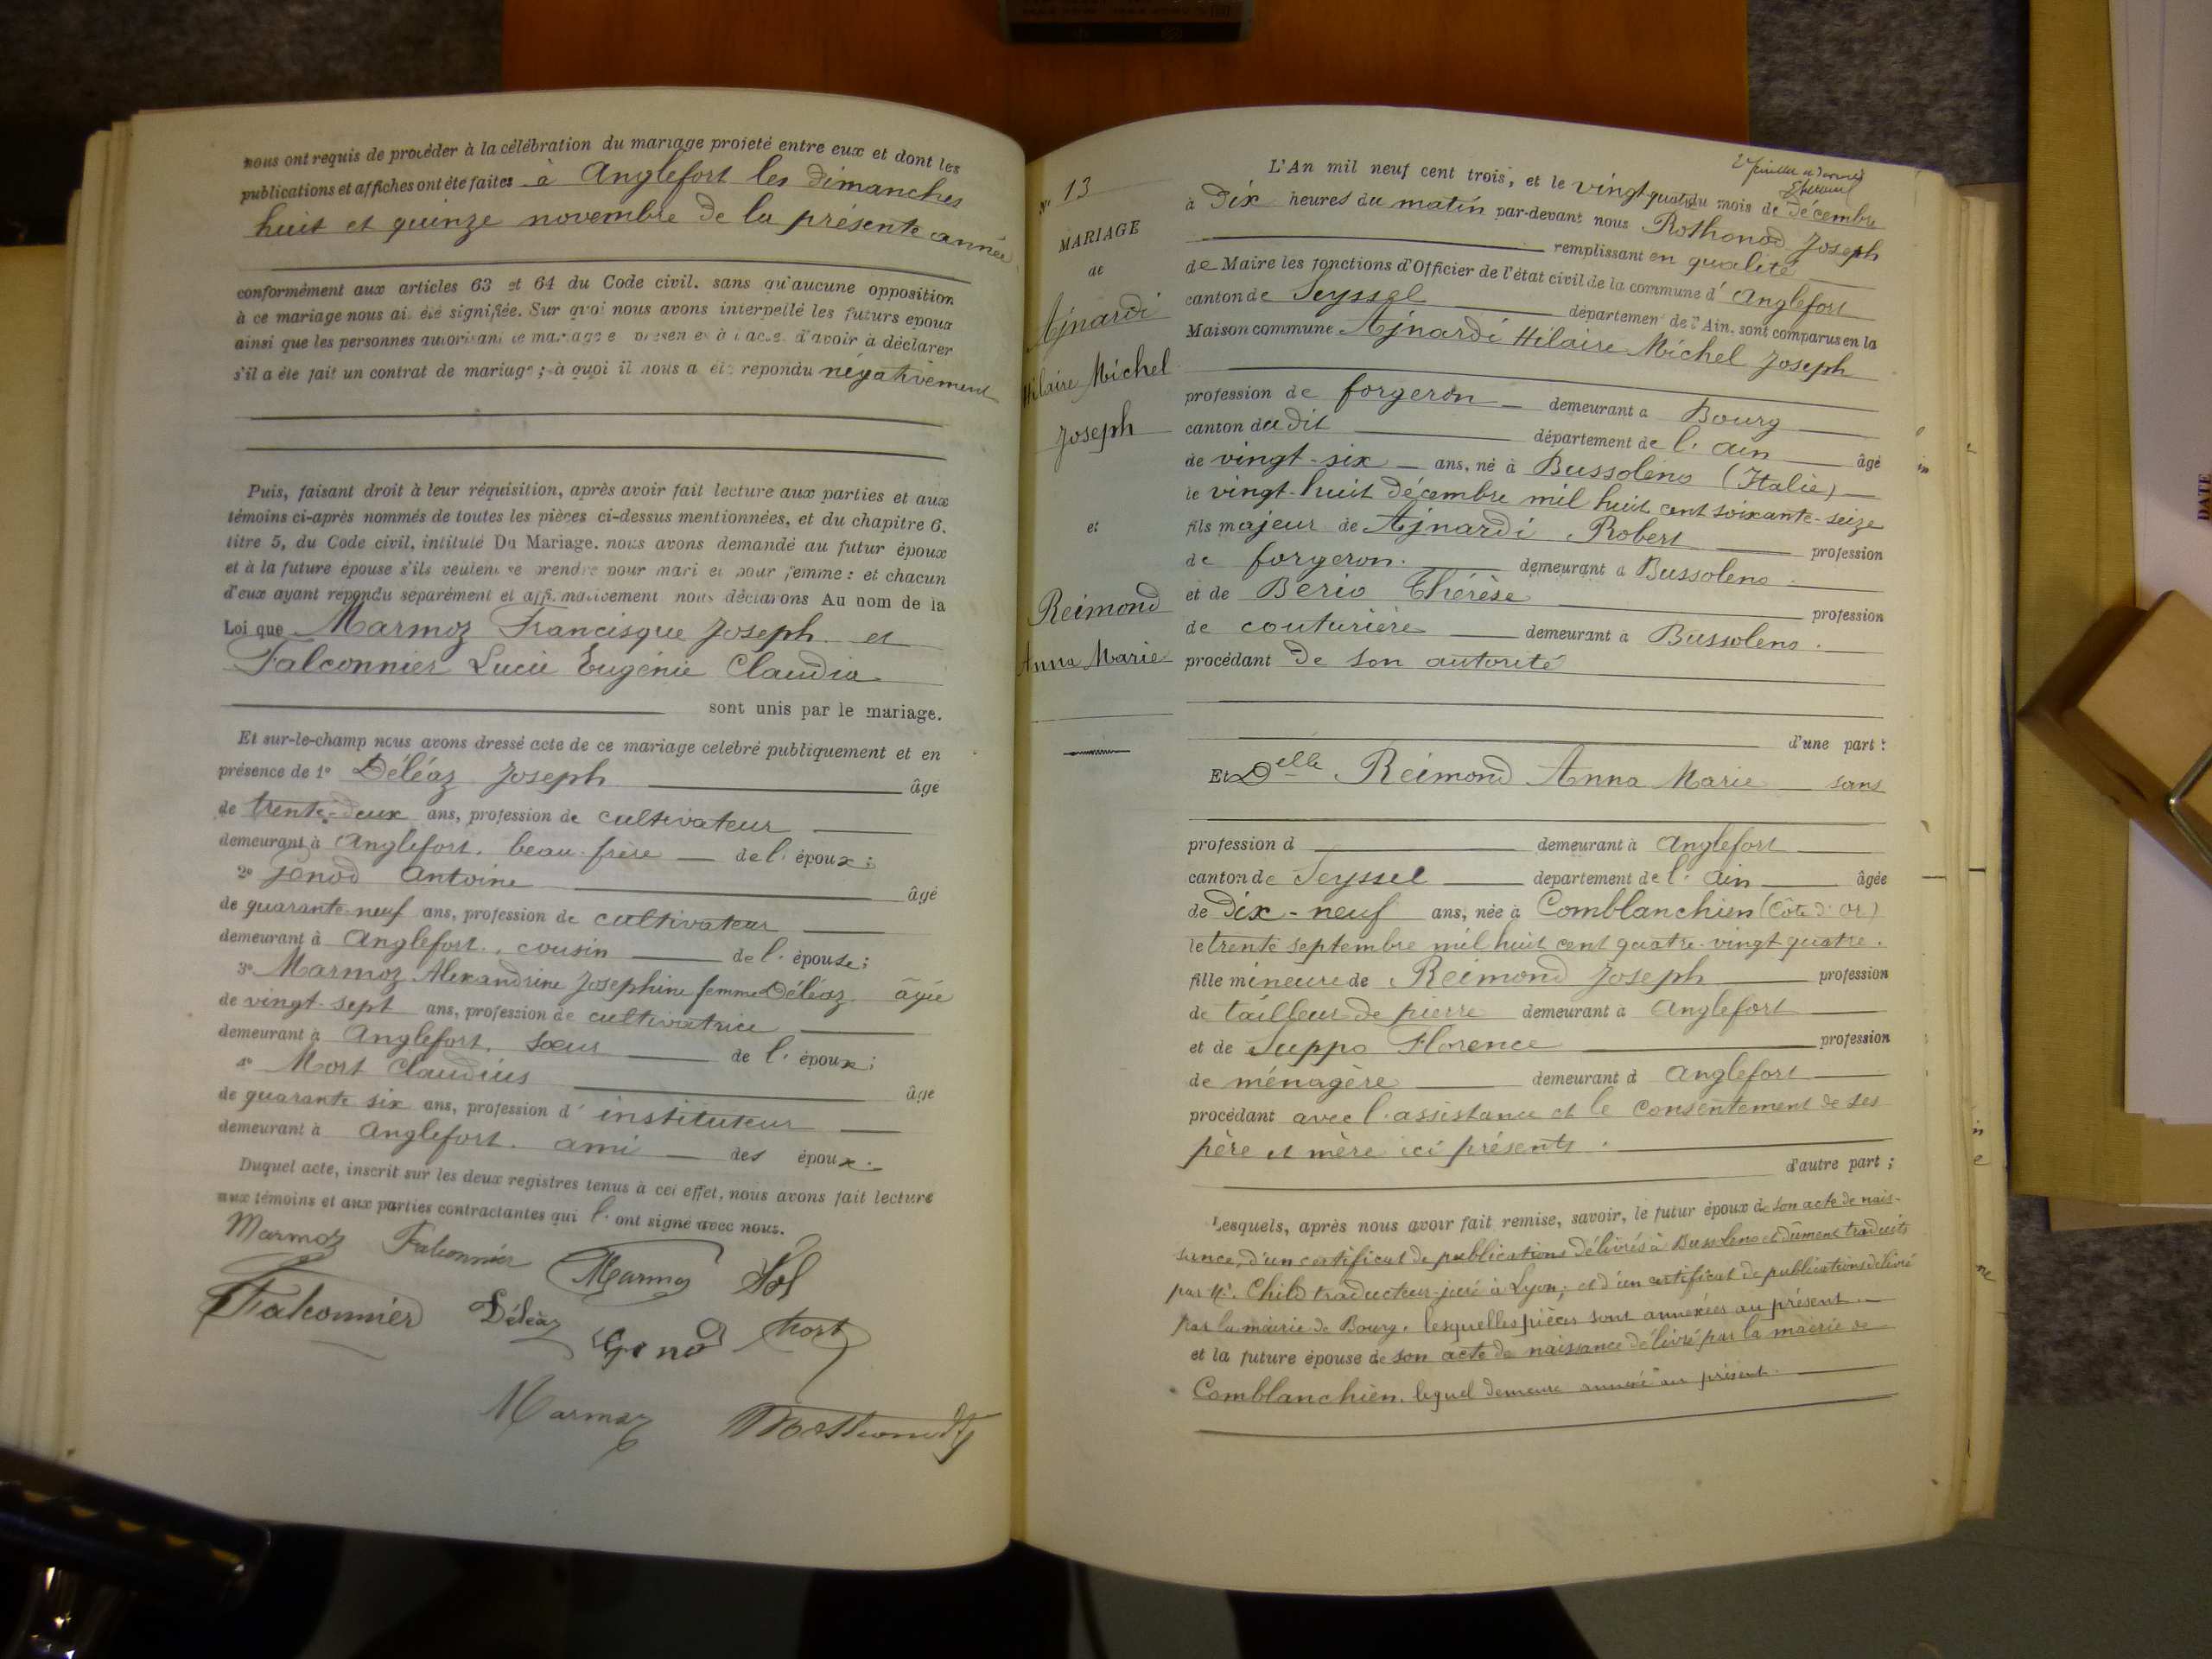 nous ont requis de procéder à la célébration du mariage projeté entre eux et dont les
publications et affiches ont été faites à Anglefort les dimanches
huit et quinze novembre de la présente année
conformément aux articles 63 et 64 du Code civil. sans qu'aucune opposition
à ce mariage nous ait été signifiée. Sur quoi nous avons interpellé les futurs epoux
ainsi que les personnes autorisant le mariage e présen es à l'acte. d'avoir à déclarer
s'il a été fait un contrat de mariage ; à quoi il nous a été repondu négativement
Puis, faisant droit à leur réquisition, après avoir fait lecture aux parties et aux
témoins ci-après nommés de toutes les pièces ci-dessus mentionnées, et du chapitre 6.
titre 5, du Code civil, intitulé Du Mariage. nous avons demandé au futur époux
et à la future épouse s'ils veulent se prendre pour mari et pour femme : et chacun
d'eux ayant répondu séparément et affirmativement nous déclarons Au nom de la
Loi que Marmoz Francisque Joseph et
Falconnier Lucie Eugénie Claudia
sont unis par le mariage.
Et sur-le-champ nous avons dressé acte de ce mariage celébré publiquement et en
présence de 1° Déléaz Joseph âgé
de trente-deux ans, profession de cultivateur
demeurant à Anglefort. beau-frère de l' époux ;
2° Jenod Antoine âgé
de quarante-neuf ans, profession de cultivateur
demeurant à Anglefort., cousin de l' épouse ;
3° Marmoz Alexandrine Josephine femme Déléaz âgée
de vingt-sept ans, profession de cultivatrice
demeurant à Anglefort, sœur de l' époux ;
4° Mort Claudius âgé
de quarante six ans, profession d' instituteur
demeurant à Anglefort. ami des époux.
Duquel acte, inscrit sur les deux registres tenus à cet effet, nous avons fait lecture
aux témoins et aux parties contractantes qui l' ont signé avec nous.
Marmoz Falconnier Marmoz
Falconnier Déléaz Genod Mort
Marmoz Rothonod J
N° 13
MARIAGE
de
Ajnardi
Hilaire Michel
Joseph
et
Reimond
Anna Marie
L'An mil neuf cent trois, et le vingt-quatre du mois de décembre
à dix heures du matin par-devant nous Rothonod Joseph
remplissant en qualité
de Maire les fonctions d'Officier de l'état civil de la commune d' Anglefort
canton de Seyssel département de l'Ain. sont comparus en la
Maison commune Ajnardi Hilaire Michel Joseph
profession de forgeron demeurant à Bourg
canton dudit département de l' Ain âgé
de vingt-six ans, né à Bussoleno (Italie)
le vingt-huit décembre mil huit cent soixante-seize
fils majeur de Ajnardi Robert profession
de forgeron. demeurant à Bussoleno.
et de Berio Thérèse profession
de couturière demeurant à Bussoleno.
procédant de son autorité
d'une part :
Et Delle Reimond Anna Marie sans
profession d demeurant à Anglefort
canton de Seyssel département de l' Ain âgée
de dix-neuf ans, née à Comblanchien (Côte d'Or)
le trente septembre mil huit cent quatre-vingt quatre.
fille mineure de Reimond Joseph profession
de tailleur de pierre demeurant à Anglefort
et de Suppo Florence profession
de ménagère demeurant à Anglefort
procédant avec l'assistance et le consentement de ses
père et mère ici présents.
d'autre part ;
Lesquels, après nous avoir fait remise, savoir, le futur époux de son acte de nais-
sance, d'un certificat de publications délivrés à Bussoleno et dûment traduits
par Mr. Child traducteur-juré à Lyon; et d'un certificat de publications délivré
par la mairie de Bourg. lesquelles pièces sont annexées au présent.
et la future épouse de son acte de naissance délivré par la mairie de
Comblanchien. lequel demeure annexé au présent.
DATE